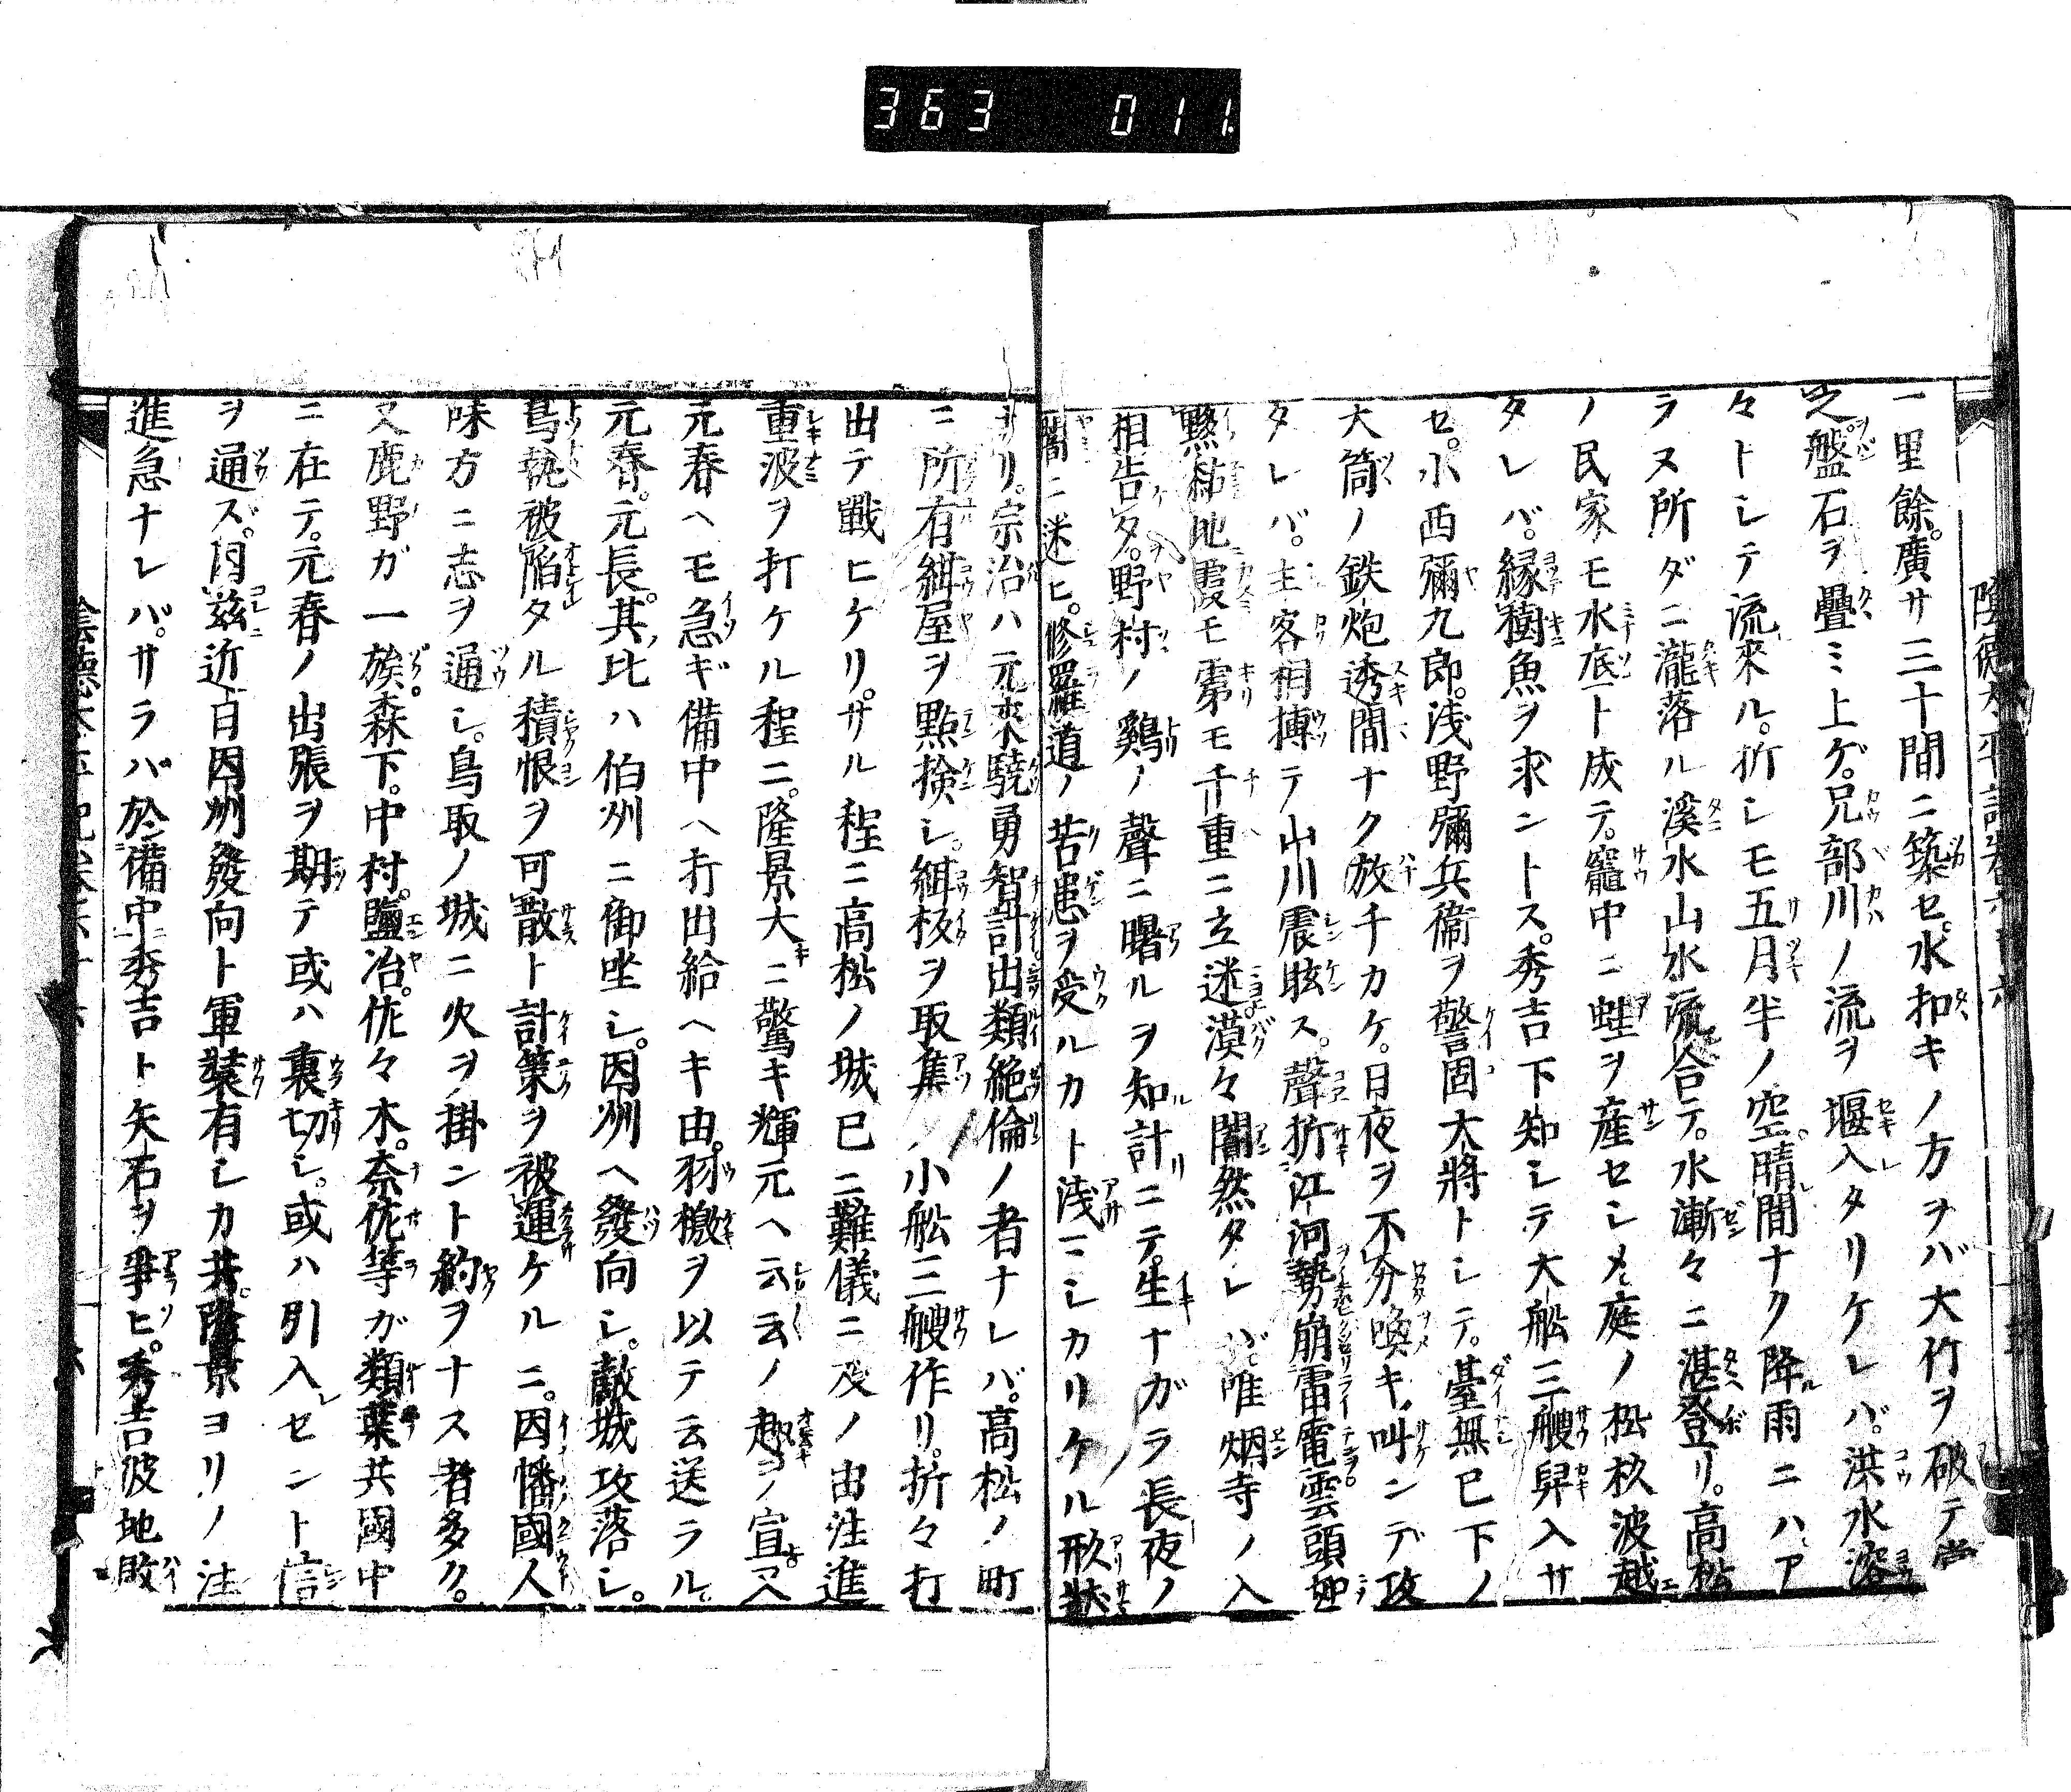 363 011.
陰徳太平記巻六十六
一里餘。廣サ三十間ニ築セ。水扣キノ方ヲバ大竹ヲ破テ
之。盤石ヲ疊ミ上ゲ。兄部川ノ流ヲ堰入タリケレバ。洪水溶
々トシテ流來ル。折シモ五月半ノ空。晴間ナク降雨ニハ、ア
ラヌ所ダニ瀧落ル溪水山水流合テ。水漸々ニ湛登リ。高松
ノ民家モ水底ト成テ。竈中ニ蛙ヲ産セシメ、庭ノ松杦波越
タレバ。縁樹魚ヲ求ントス。秀吉下知シテ大船三艘舁入サ
セ。小西彌九郎。浅野彌兵衞ヲ警固大將トシテ。臺無已下ノ
大筒ノ鉄炮透間ナク放チカケ。日夜ヲ不分喚キ叫ンデ攻
タレバ。主客相摶テ山川震眩ス。聲折江河勢崩雷電雲頭
黙黏地霞モ霧モ千重ニ立迷漠々闇然タレバ唯烟寺ノ入
相告タ。野村ノ鷄ノ聲ニ曙ルヲ知計ニテ。生ナガラ長夜ノ
闇ニ迷ヒ。修羅道ノ苦患ヲ受ルカト浅マシカリケル形状
ナリ。宗治ハ元来驍勇智計出類絶倫ノ者ナレバ。高松ノ町
ニ所有紺屋ヲ點撿シ。紺板ヲ取集ノ小舩三艘作リ。折々打
出テ戰ヒケリ。サル程ニ高松ノ城已ニ難儀ニ及ノ由注進
重波ヲ打ケル程ニ。隆景大ニ驚キ輝元ヘ云云ノ趣ヲノ宣。又
元春ヘモ急ギ備中ヘ打出給ヘキ由。羽檄ヲ以テ云送ラル
元春。元長。其比ハ伯州ニ御坐シ。因州ヘ發向シ。敵城攻落シ。
鳥執被陥タル積恨ヲ可散ト計策ヲ被運ケルニ。因幡國人
味方ニ志ヲ通シ。鳥取ノ城ニ火ヲ掛ント約ヲナス者多ク。
又鹿野ガ一族。森下。中村。鹽冶。佐々木。奈佐等ガ類葉共國中
ニ在テ。元春ノ出張ヲ期テ或ハ裏切シ。或ハ引入セント信
ヲ通ズ。因茲近日因州發向ト軍装有シカ共。隆景ヨリノ注
進急ナレバ。サラバ於備中秀吉ト矢石ヲ爭ヒ。秀吉彼地敗
陰德太平記巻六十六